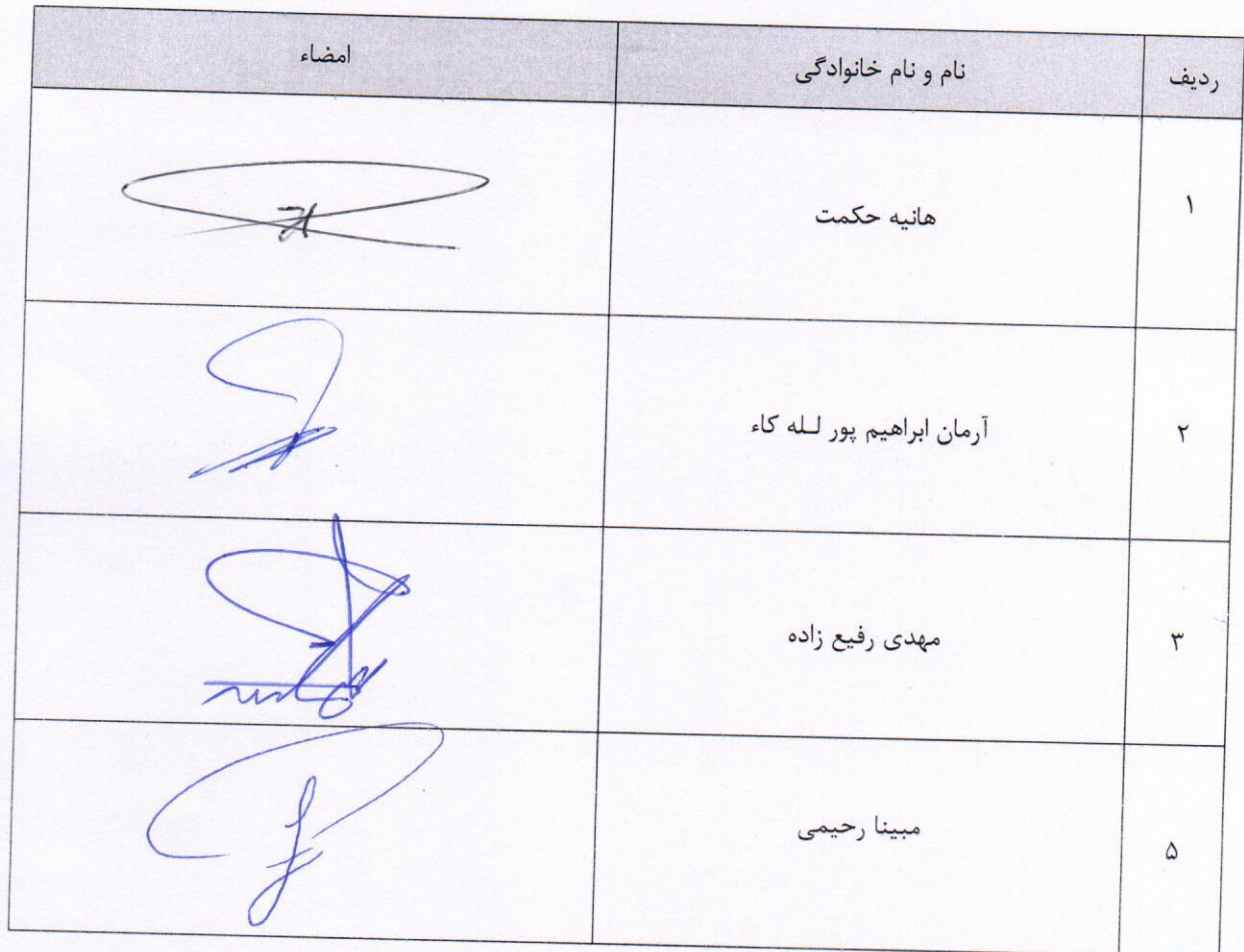 ردیف نام و نام خانوادگی امضاء
۱ هانیه حکمت
۲ آرمان ابراهیم پور لـله کاء
۳ مهدی رفیع زاده
۵ مبینا رحیمی